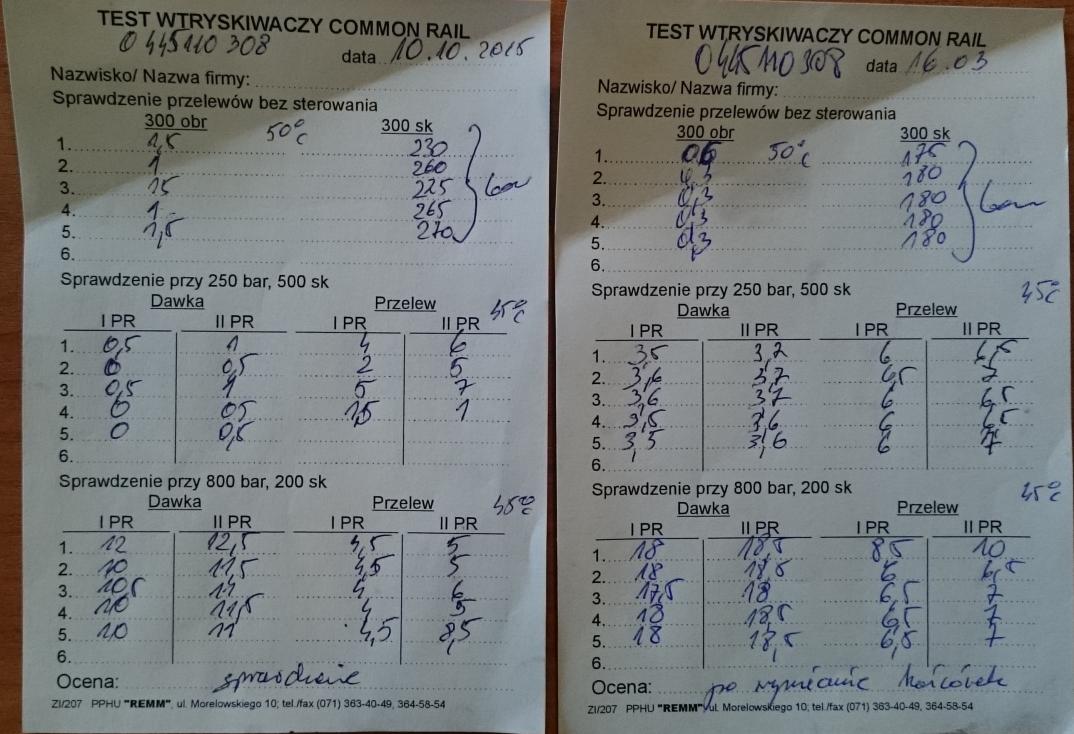 TEST WTRYSKIWACZY COMMON RAIL
0 445110 308 data 10.10.2015
Nazwisko/ Nazwa firmy:
Sprawdzenie przelewów bez sterowania
300 obr 50°C 300 sk
1. 1,5 230
2. 1 260
3. 15 225 bar
4. 1 265
5. 1,5 270
6.
Sprawdzenie przy 250 bar, 500 sk
Dawka Przelew 45°C
I PR II PR I PR II PR
1. 0,5 1 4 6
2. 0 0,5 2 5
3. 0,5 1 5 7
4. 0 05 15 1
5. 0 0,5
6.
Sprawdzenie przy 800 bar, 200 sk
Dawka Przelew 45°C
I PR II PR I PR II PR
1. 12 12,5 4,5 5
2. 10 11,5 4,5 5
3. 10,5 11 4 6
4. 10 11,5 4 5
5. 10 11 4,5 8,5
6.
Ocena: sprawdzenie
ZI/207 PPHU "REMM", ul. Morelowskiego 10; tel./fax (071) 363-40-49, 364-58-54
TEST WTRYSKIWACZY COMMON RAIL
0445 110 308 data 16.03
Nazwisko/ Nazwa firmy:
Sprawdzenie przelewów bez sterowania
300 obr 50°C 300 sk
1. 175
2. 0,3 180
3. 0,3 180 bar
4. 0,3 180
5. 0,3 180
6.
Sprawdzenie przy 250 bar, 500 sk
Dawka Przelew 45°C
I PR II PR I PR II PR
1. 3,5 3,7 6 6,5
2. 3,6 3,7 6,5 7
3. 3,6 3,7 6 6,5
4. 3,5 3,6 6 6,5
5. 3,5 3,6 6 7
6.
Sprawdzenie przy 800 bar, 200 sk
Dawka Przelew 45°C
I PR II PR I PR II PR
1. 18 18,5 8,5 10
2. 18 18,5 6 6,5
3. 17,5 18 6,5 7
4. 18 18,5 6,5 7
5. 18 18,5 6,5 7
6.
Ocena: po wymianie końcówek
ZI/207 PPHU "REMM", ul. Morelowskiego 10; tel./fax (071) 363-40-49, 364-58-54